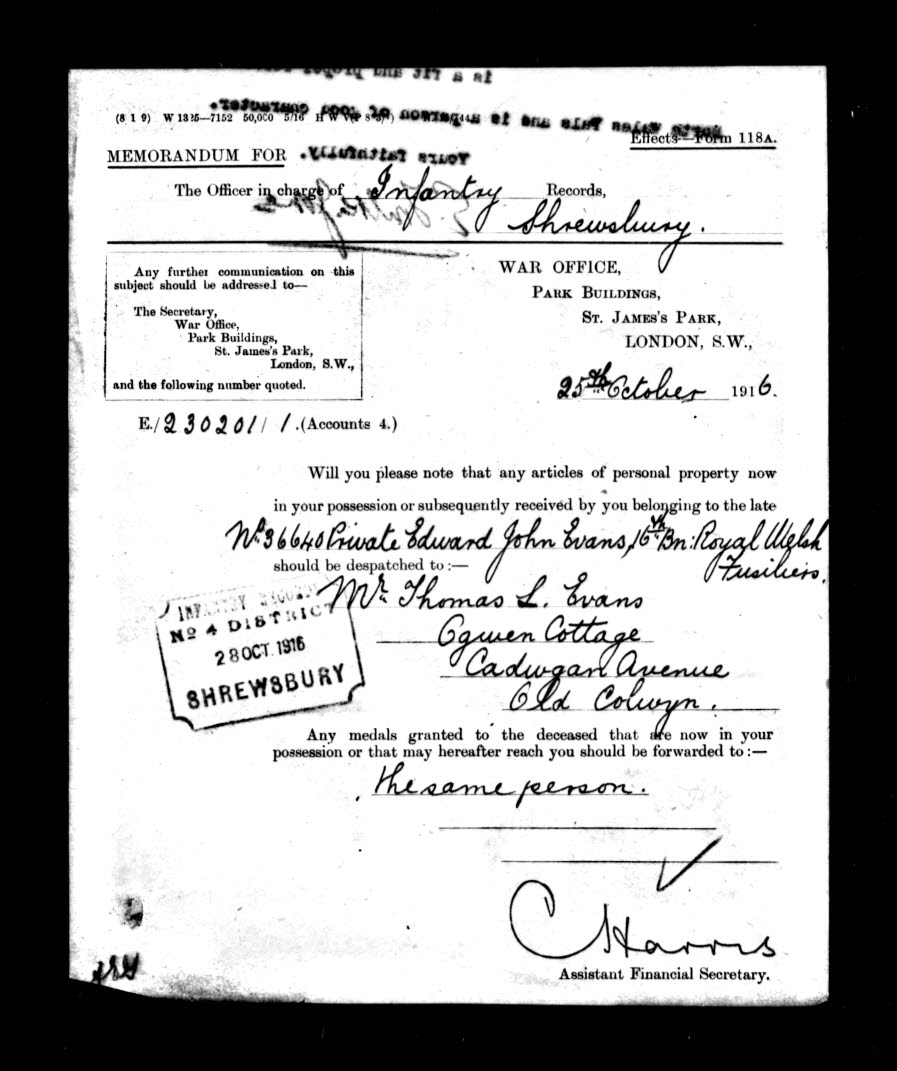 (8 1 9) W 1325—7152 50,000 5/16 H W V
Effects—Form 118A.
MEMORANDUM FOR
The Officer in charge of Infantry Records,
Shrewsbury.
Any further communication on this
subject should be addressed to—
The Secretary,
War Office,
Park Buildings,
St. James's Park,
London, S.W.,
and the following number quoted.
WAR OFFICE,
PARK BUILDINGS,
ST. JAMES'S PARK,
LONDON, S.W.,
25th October 1916.
E./230201/1.(Accounts 4.)
Will you please note that any articles of personal property now
in your possession or subsequently received by you belonging to the late
No. 36640 Private Edward John Evans, 16th Bn: Royal Welsh
Fusiliers.
should be despatched to:—
Mr. Thomas L. Evans
Ogwen Cottage
Cadwgan Avenue
Old Colwyn.
INFANTRY RECORDS
No 4 DISTRICT
28 OCT. 1916
SHREWSBURY
Any medals granted to the deceased that are now in your
possession or that may hereafter reach you should be forwarded to:—
the same person.
C Harris
Assistant Financial Secretary.